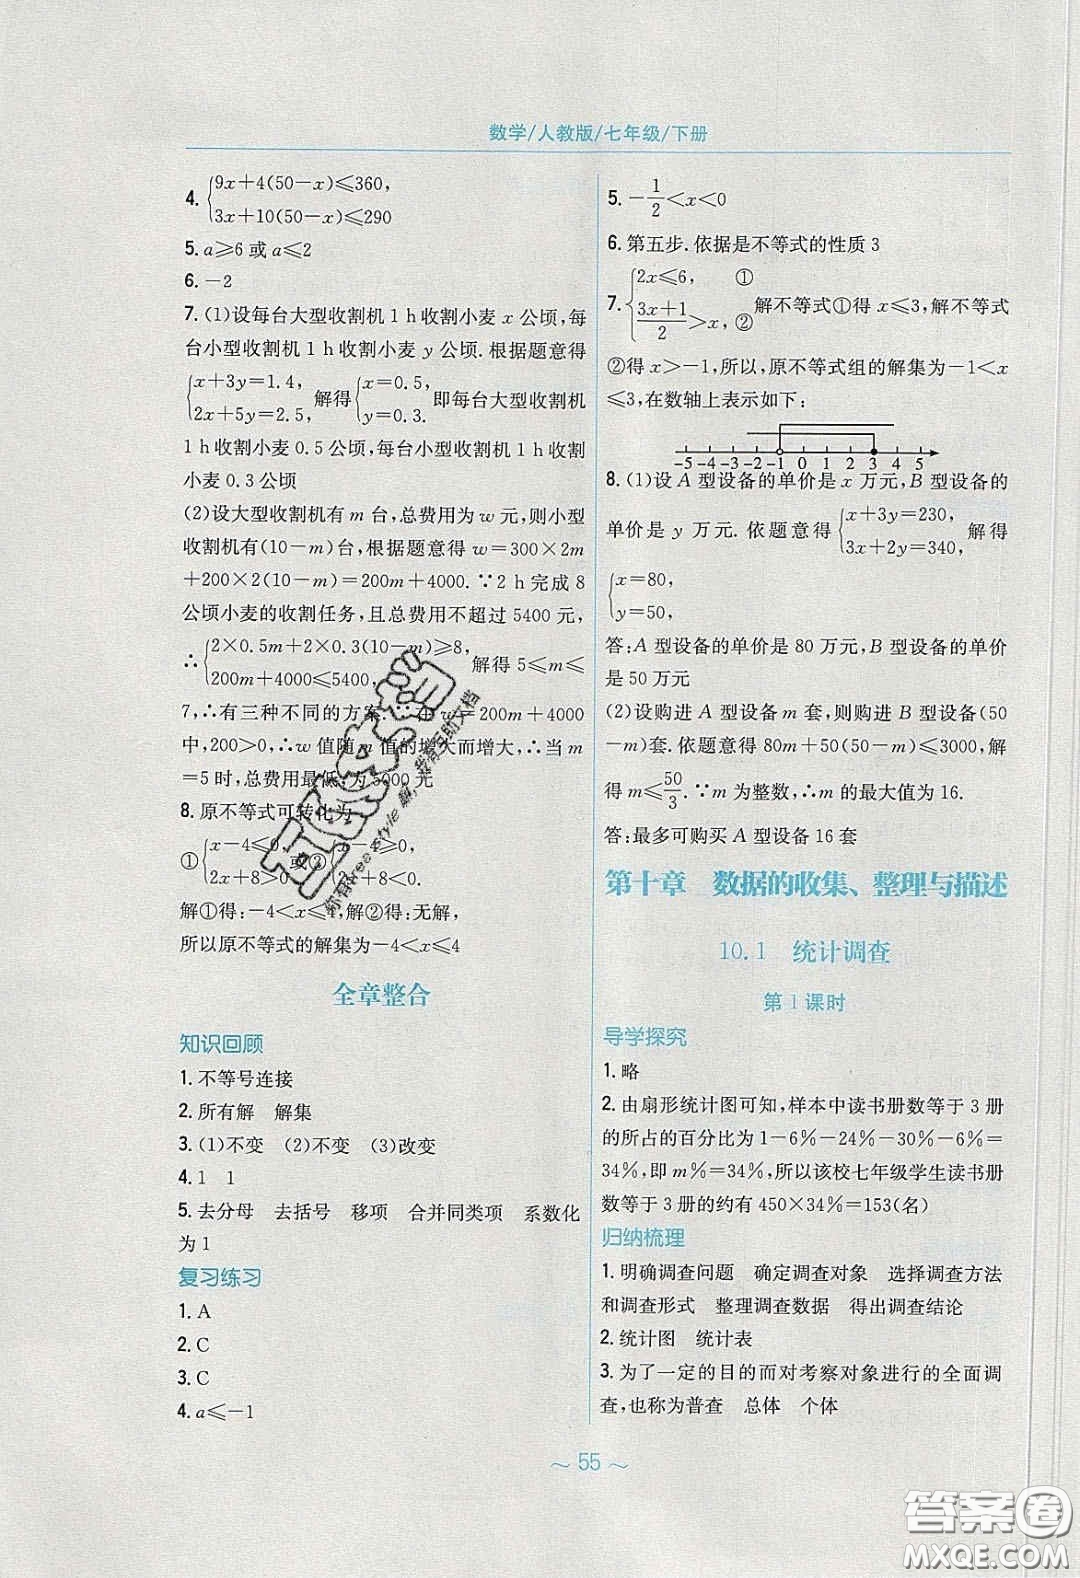 数学/人教版/七年级/下册
4. {9x+4(50-x)≤360,
3x+10(50-x)≤290
5. a≥6 或 a≤2
6. -2
7. (1)设每台大型收割机 1 h 收割小麦 x 公顷,每
台小型收割机 1 h 收割小麦 y 公顷.根据题意得
{x+3y=1.4, 解得 {x=0.5, 即每台大型收割机
2x+5y=2.5, y=0.3.
1 h 收割小麦 0.5 公顷,每台小型收割机 1 h 收割
小麦 0.3 公顷
(2)设大型收割机有 m 台,总费用为 w 元,则小型
收割机有(10-m)台,根据题意得 w=300×2m
+200×2(10-m)=200m+4000.∵2 h 完成 8
公顷小麦的收割任务,且总费用不超过 5400 元,
∴{2×0.5m+2×0.3(10-m)≥8, 解得 5≤m≤
200m+4000≤5400,
7,∴有三种不同的方案. 在 w=200m+4000
中,200>0,∴w 值随 m 值的增大而增大,∴当 m
=5 时,总费用最低,为 5000 元
8. 原不等式可转化为
①{x-4≤0 或② {x-4≥0,
2x+8>0 2x+8<0.
解①得:-4<x≤4 解②得:无解,
所以原不等式的解集为-4<x≤4
全章整合
知识回顾
1. 不等号连接
2. 所有解 解集
3. (1)不变 (2)不变 (3)改变
4. 1 1
5. 去分母 去括号 移项 合并同类项 系数化
为 1
复习练习
1. A
2. C
3. C
4. a≤-1
5. -1/2<x<0
6. 第五步.依据是不等式的性质 3
7. {2x≤6, ①
(3x+1)/2>x, ② 解不等式①得 x≤3,解不等式
②得 x>-1,所以,原不等式组的解集为-1<x
≤3,在数轴上表示如下:
-5 -4 -3 -2 -1 0 1 2 3 4 5
8. (1)设 A 型设备的单价是 x 万元,B 型设备的
单价是 y 万元.依题意得 {x+3y=230, 解得
3x+2y=340,
{x=80,
y=50,
答:A 型设备的单价是 80 万元,B 型设备的单价
是 50 万元
(2)设购进 A 型设备 m 套,则购进 B 型设备(50
-m)套.依题意得 80m+50(50-m)≤3000,解
得 m≤50/3.∵m 为整数,∴m 的最大值为 16.
答:最多可购买 A 型设备 16 套
第十章 数据的收集、整理与描述
10.1 统计调查
第 1 课时
导学探究
1. 略
2. 由扇形统计图可知,样本中读书册数等于 3 册
的所占的百分比为 1-6%-24%-30%-6%=
34%,即 m%=34%,所以该校七年级学生读书册
数等于 3 册的约有 450×34%=153(名)
归纳梳理
1. 明确调查问题 确定调查对象 选择调查方法
和调查形式 整理调查数据 得出调查结论
2. 统计图 统计表
3. 为了一定的目的而对考察对象进行的全面调
查,也称为普查 总体 个体
~ 55 ~
答案圈
MXQE.COM